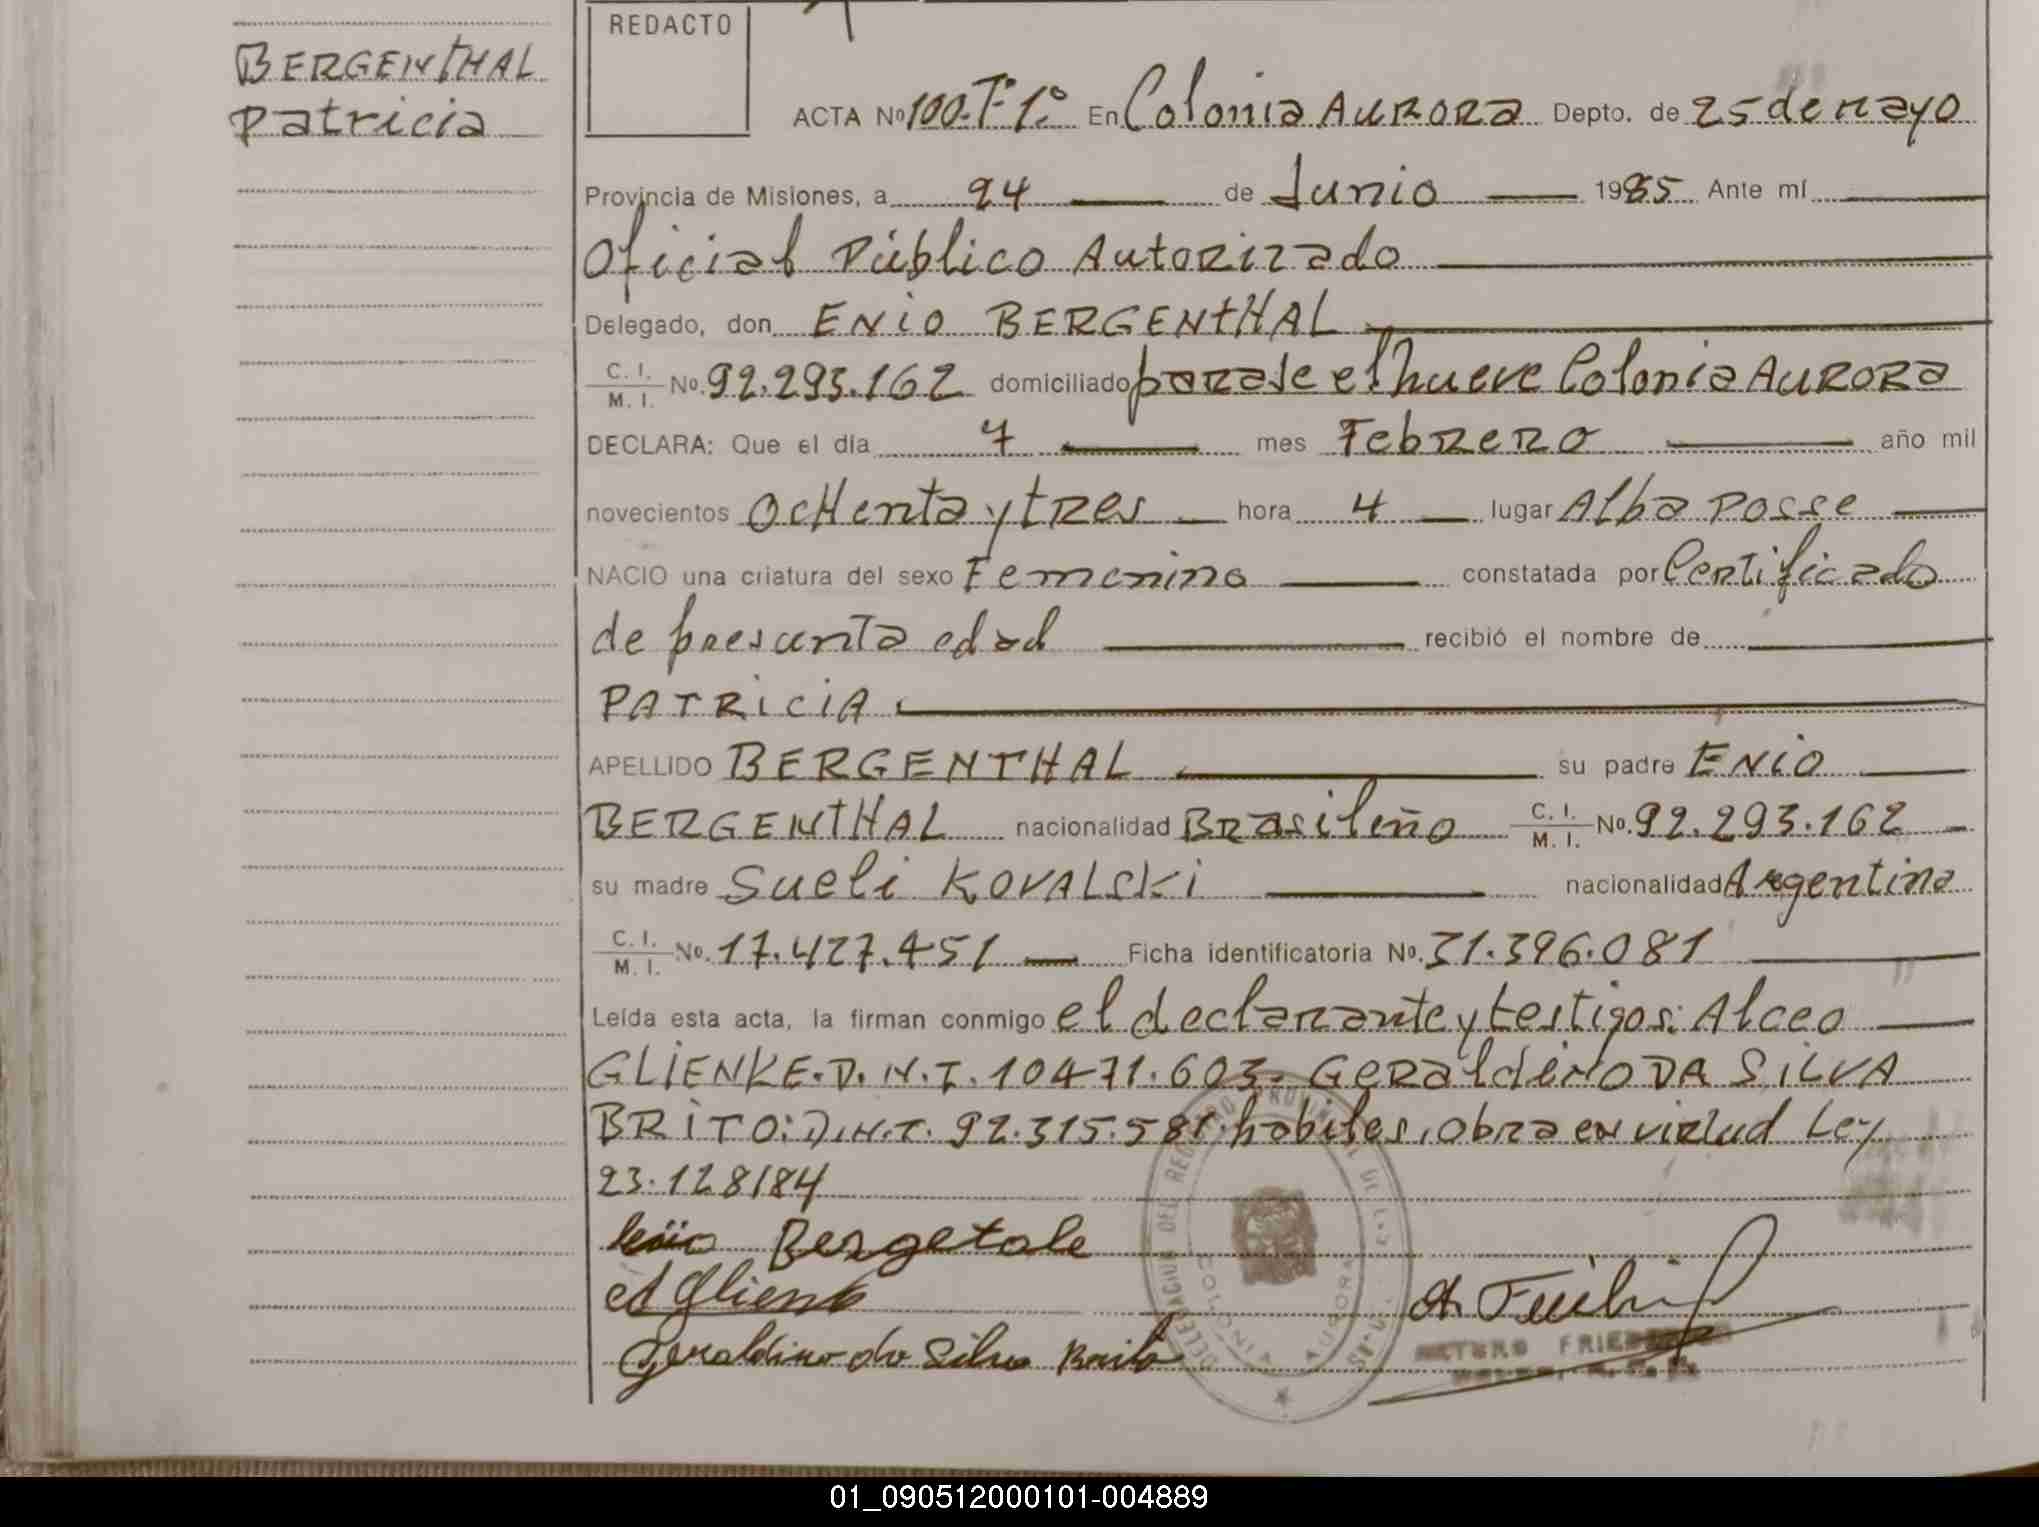 BERGENTHAL
Patricia
REDACTO
ACTA Nº 100.Tº1º. En Colonia AURORA Depto. de 25 de mayo
Provincia de Misiones, a 24 de Junio 1985 Ante mí
Oficial Público Autorizado
Delegado, don ENiO BERGENtHAL
C. I. / M. I. No. 92.293.162 domiciliado paraje el nueve Colonia AURORA
DECLARA: Que el día 7 mes Febrero año mil
novecientos OcHenta y tRes hora 4 lugar Alba Posse
NACIO una criatura del sexo Femenino constatada por Certificado
de presunta edad recibió el nombre de
PATRiCiA
APELLIDO BERGENTHAL su padre ENiO
BERGENtHAL nacionalidad Brasileño C. I. / M. I. No. 92.293.162
su madre Sueli KOVALSKi nacionalidad Argentina
C. I. / M. I. No. 17.427.451 Ficha identificatoria No. 31.396.081
Leída esta acta, la firman conmigo el declarante y testigos: Alceo
GLiENKE. D.N.I. 10471.603. GERaldiNO DA SiLVA
BRiTO: D.N.I. 92.315.581. habiles, obra en virtud Ley
23.128/84
Bergetale
A Glienk
Geraldino da Silva Brito
DELEGACION DEL REGISTRO PROVINCIAL DE LAS
COLONIA AURORA
ARTURO